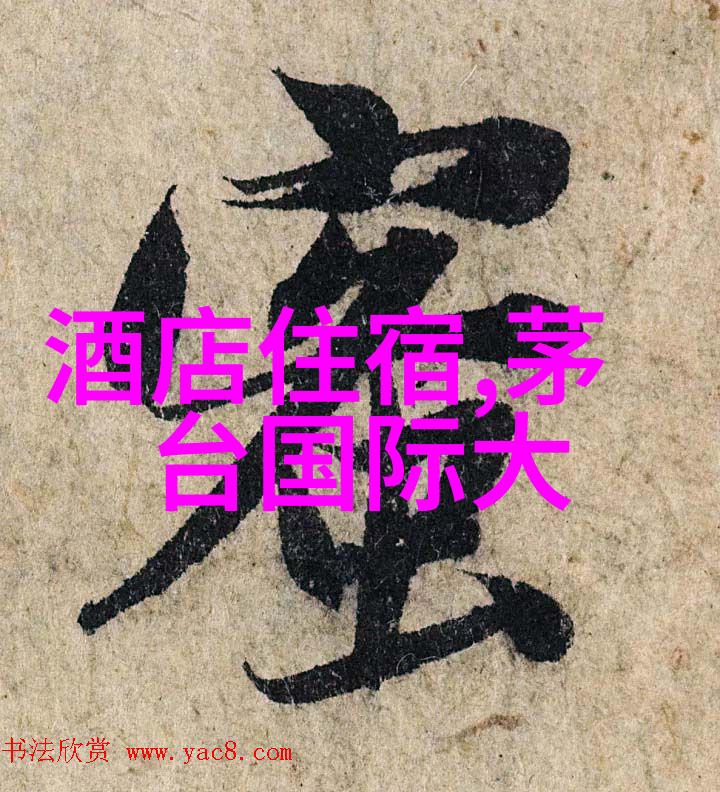 酒店住宿,茅
台国际大
书法欣赏 www.yac8.com